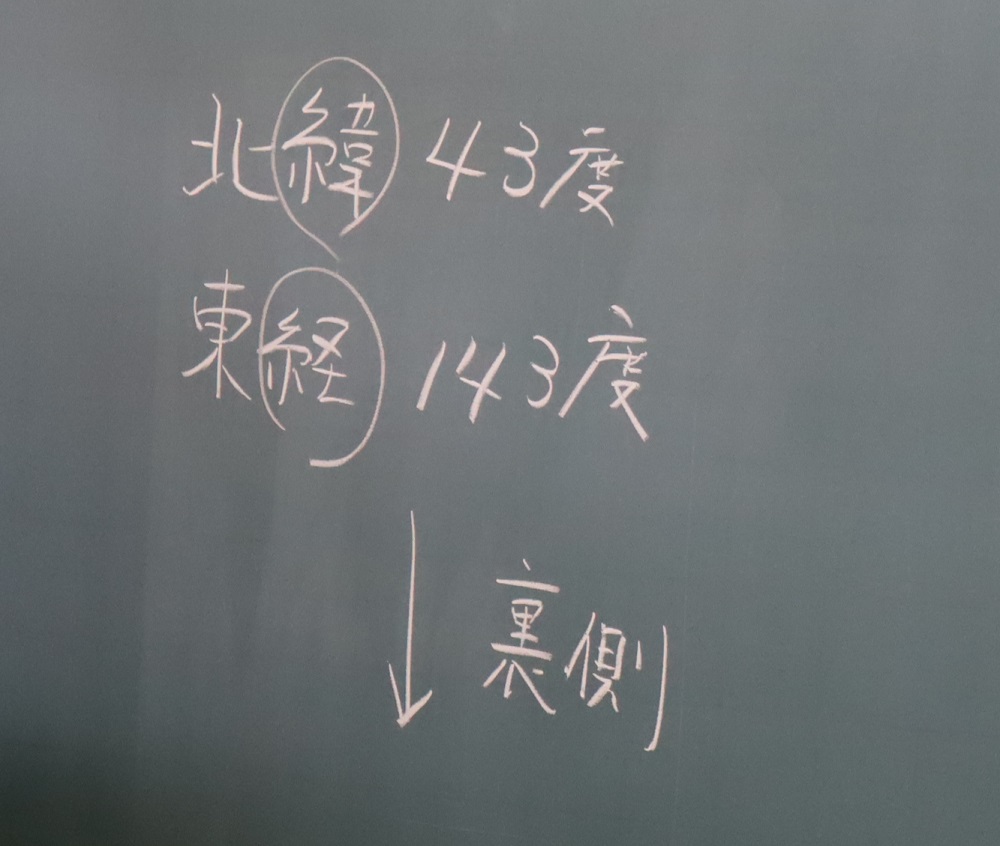 北緯 43度
東経 143度
↓ 裏側